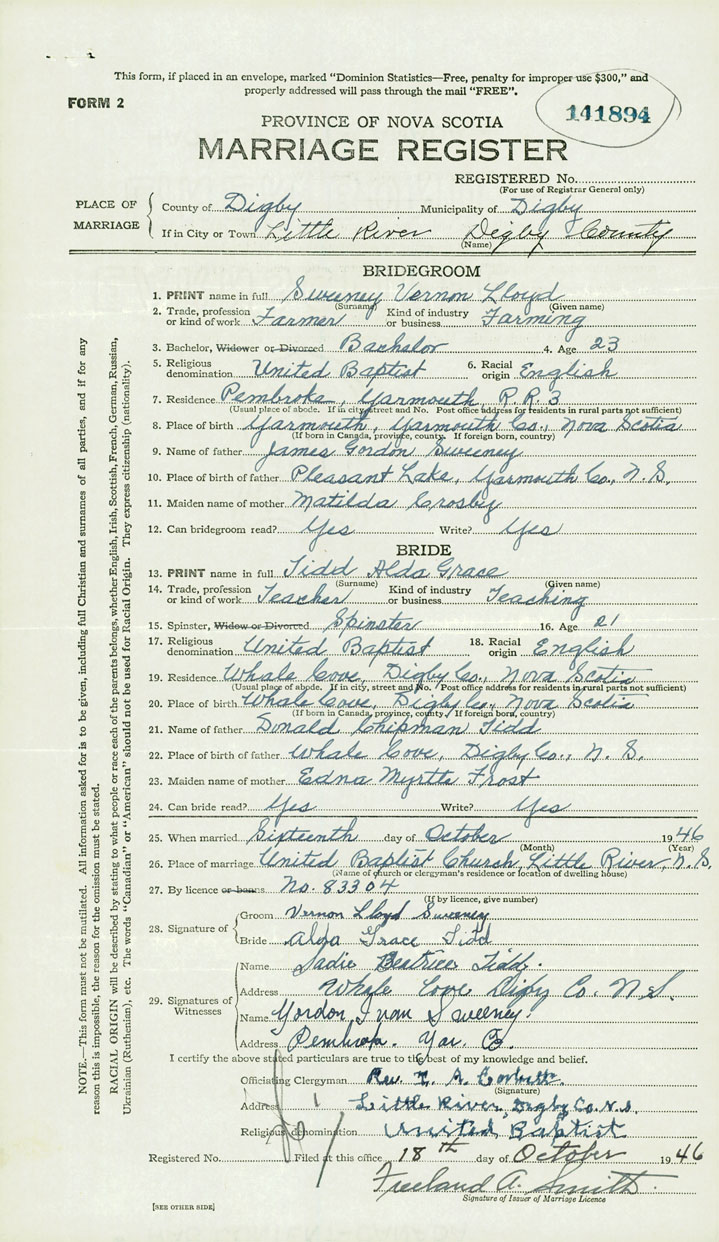 This form, if placed in an envelope, marked "Dominion Statistics—Free, penalty for improper use $300," and
properly addressed will pass through the mail "FREE".
FORM 2
141894
PROVINCE OF NOVA SCOTIA
MARRIAGE REGISTER
REGISTERED No.
(For use of Registrar General only)
PLACE OF MARRIAGE
County of Digby Municipality of Digby
If in City or Town Little River Digby County
(Name)
BRIDEGROOM
1. PRINT name in full Sweeney Vernon Lloyd
(Surname) (Given name)
2. Trade, profession or kind of work Farmer Kind of industry or business Farming
3. Bachelor, Widower or Divorced Bachelor 4. Age 23
5. Religious denomination United Baptist 6. Racial origin English
7. Residence Pembroke, Yarmouth, R.R.3
(Usual place of abode. If in city, street and No. Post office address for residents in rural parts not sufficient)
8. Place of birth Yarmouth, Yarmouth Co., Nova Scotia
(If born in Canada, province, county. If foreign born, country)
9. Name of father James Gordon Sweeney
10. Place of birth of father Pleasant Lake, Yarmouth Co., N.S.
11. Maiden name of mother Matilda Crosby
12. Can bridegroom read? Yes Write? Yes
BRIDE
13. PRINT name in full Tidd Alda Grace
(Surname) (Given name)
14. Trade, profession or kind of work Teacher Kind of industry or business Teaching
15. Spinster, Widow or Divorced Spinster 16. Age 21
17. Religious denomination United Baptist 18. Racial origin English
19. Residence Whale Cove, Digby Co., Nova Scotia
(Usual place of abode. If in city, street and No. Post office address for residents in rural parts not sufficient)
20. Place of birth Whale Cove, Digby Co., Nova Scotia
(If born in Canada, province, county. If foreign born, country)
21. Name of father Donald Chipman Tidd
22. Place of birth of father Whale Cove, Digby Co., N.S.
23. Maiden name of mother Edna Myrtle Frost
24. Can bride read? Yes Write? Yes
25. When married Sixteenth day of October 1946
(Month) (Year)
26. Place of marriage United Baptist Church, Little River, N.S.
(Name of church or clergyman's residence or location of dwelling house)
27. By licence or banns No. 83304
(If by licence, give number)
28. Signature of
Groom Vernon Lloyd Sweeney
Bride Alda Grace Tidd
29. Signatures of Witnesses
Name Sadie Beatrice Tidd.
Address Whale Cove Digby Co. N.S.
Name Gordon Ivan Sweeney.
Address Pembrok. Yar. Co.
I certify the above stated particulars are true to the best of my knowledge and belief.
Officiating Clergyman Rev. A. Corbett.
(Signature)
Address Little River, Digby Co. N.S.
Religious denomination United Baptist
Registered No. Filed at this office 18th day of October 1946
Freeland A. Smith
Signature of Issuer of Marriage Licence
[SEE OTHER SIDE]
NOTE.—This form must not be mutilated. All information asked for is to be given, including full Christian and surnames of all parties, and if for any
reason this is impossible, the reason for the omission must be stated.
RACIAL ORIGIN will be described by stating to what people or race each of the parents belongs, whether English, Irish, Scottish, French, German, Russian,
Ukrainian (Ruthenian), etc. The words "Canadian" or "American" should not be used for Racial Origin. They express citizenship (nationality).